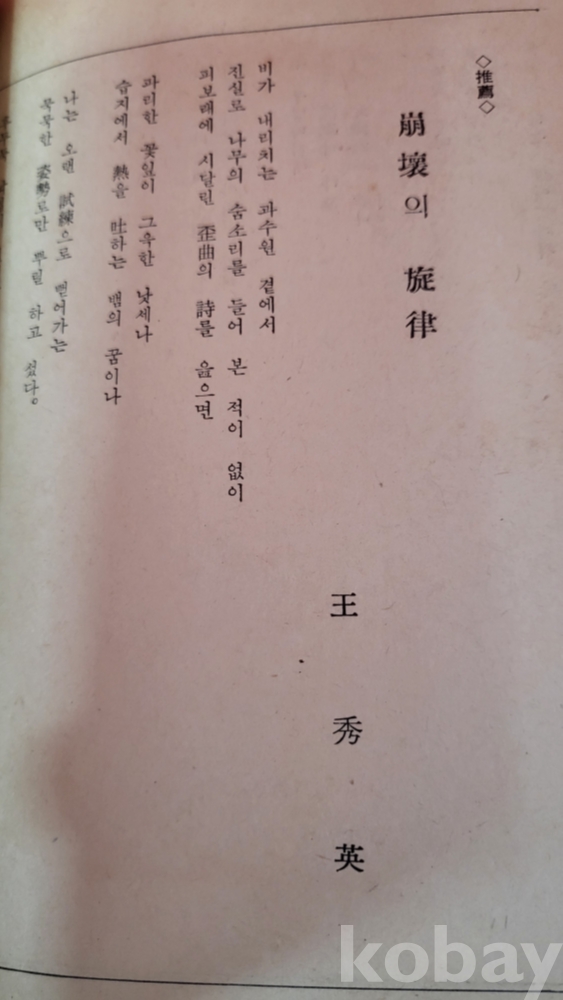 ◇推薦◇
崩壞의 旋律
王秀英
비가 내리치는 과수원 곁에서
진실로 나무의 숨소리를 들어 본 적이 없이
피보래에 시달린 歪曲의 詩를 읊으면
파리한 꽃잎이 그윽한 낮세나
습지에서 熱을 吐하는 뱀의 꿈이나
나는 오랜 試練으로 뻗어가는
묵묵한 姿勢로만 뿌릴 하고 섰다。
kobay